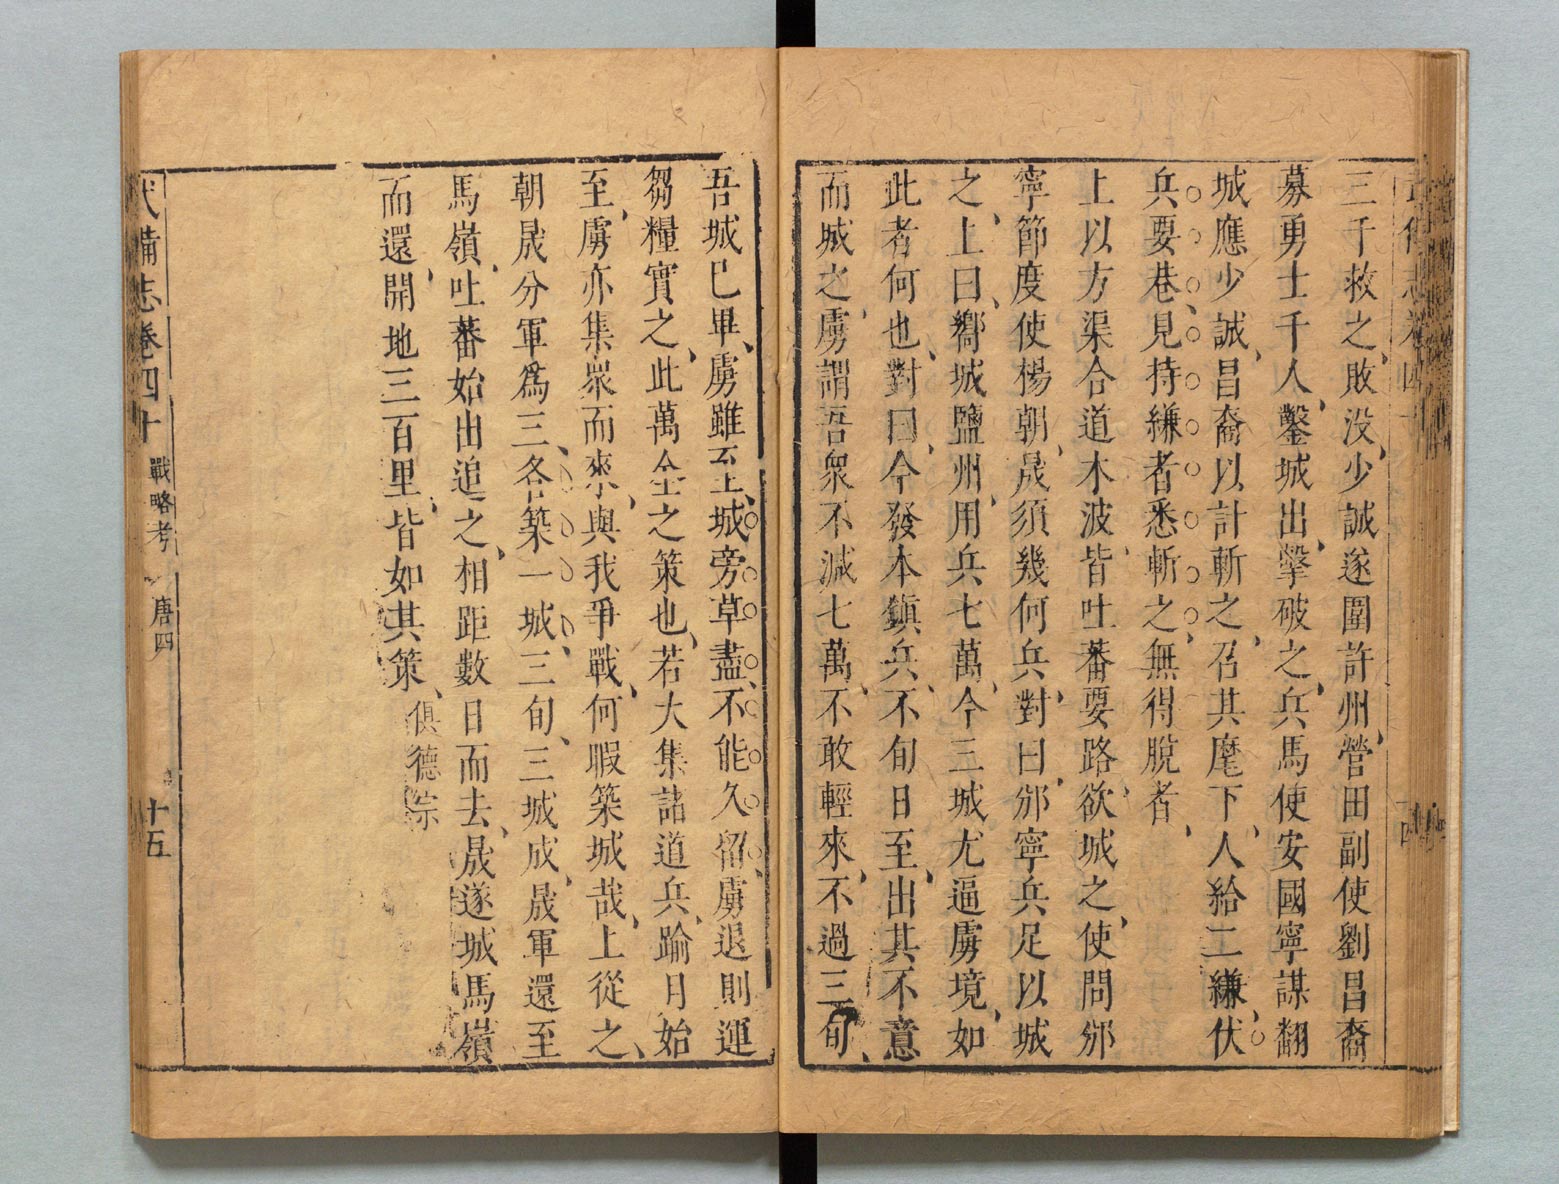 三千救之敗没少誠遂圍許州營田副使劉昌裔
募勇士千人鑿城出擊破之兵馬使安國寧謀翻
城應少誠昌裔以計斬之召其麾下人給二縑伏
兵要巷見持縑者悉斬之無得脫者
上以方渠合道木波皆吐蕃要路欲城之使問邠
寧節度使楊朝晟須幾何兵對曰邠寧兵足以城
之上曰嚮城鹽州用兵七萬今三城尤逼虜境如
此者何也對曰今發本鎮兵不旬日至出其不意
而城之虜謂吾衆不減七萬不敢輕來不過三旬
吾城已畢虜雖至城旁草盡不能久留虜退則運
芻糧實之此萬全之策也若大集諸道兵踰日始
至虜亦集衆而來與我爭戰何暇築城哉上從之
朝晟分軍爲三各築一城三旬三城成晟軍還至
馬嶺吐蕃始出追之相距數日而去晟遂城馬嶺
而還開地三百里皆如其策俱德宗
武備志卷四十 戰略考 唐四 十五